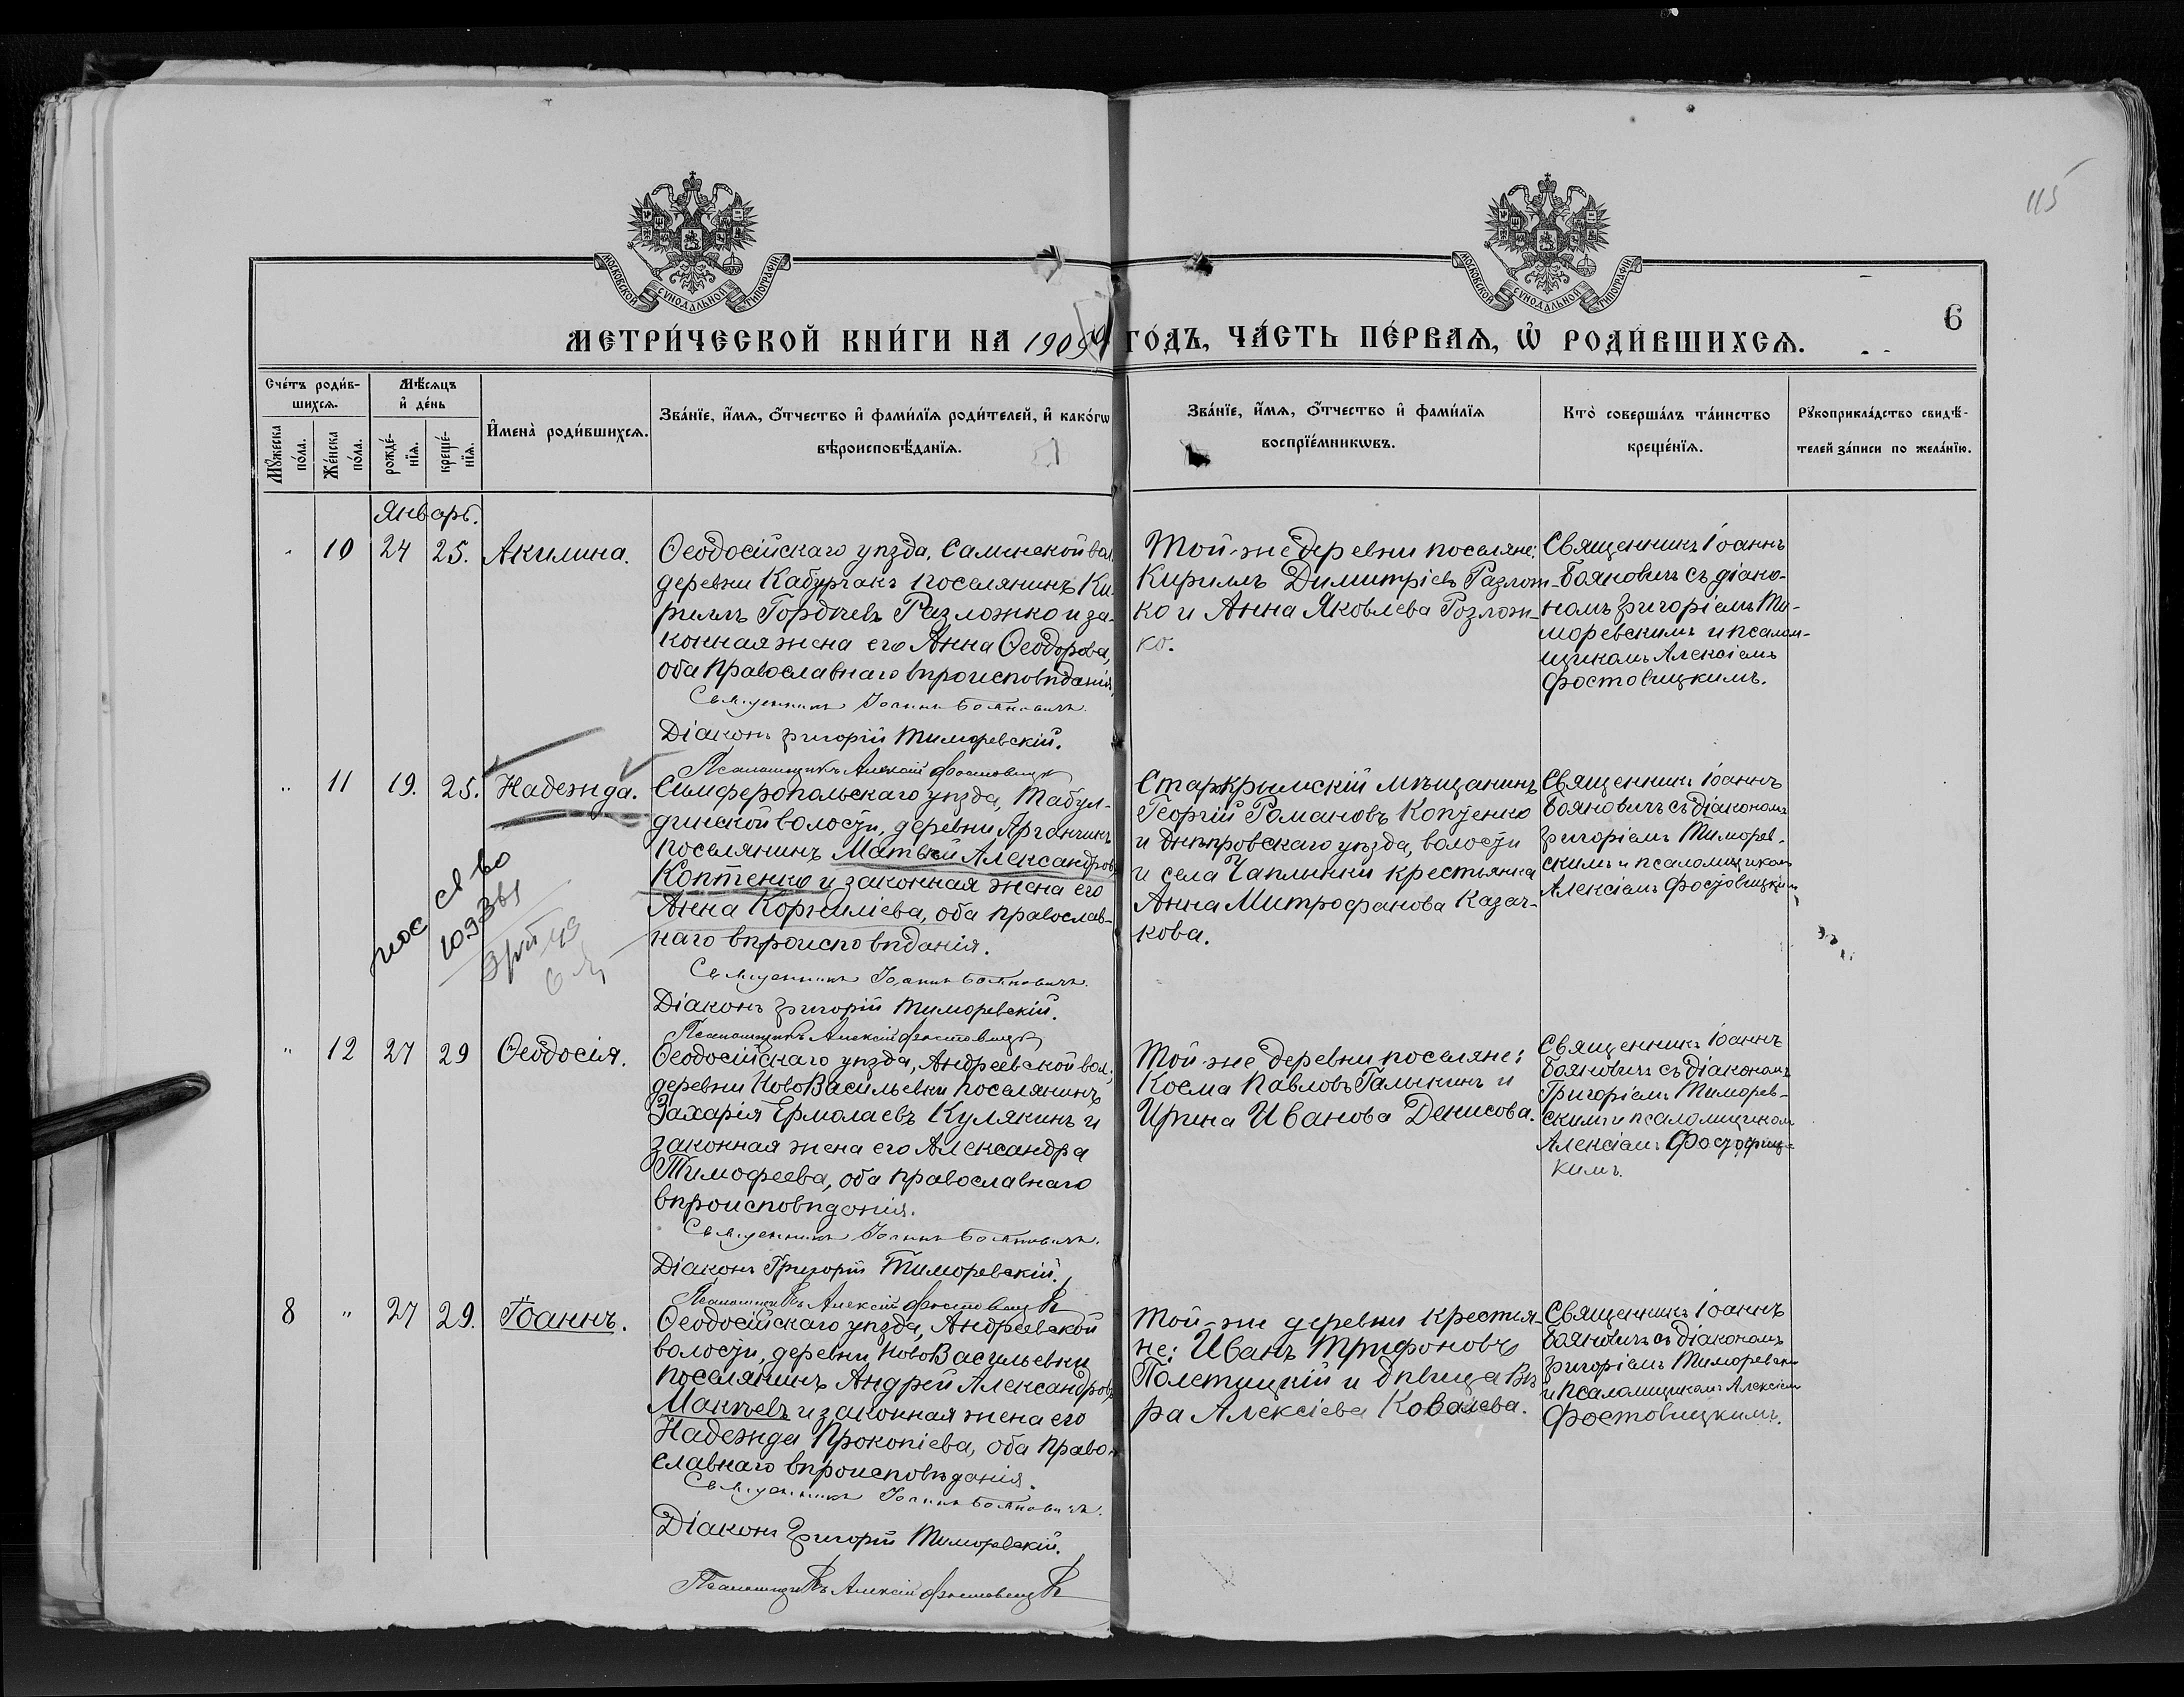 115
МОСКОВСКОЙ СѴНОДАЛЬНОЙ ТИПОГРАФІИ
МОСКОВСКОЙ СѴНОДАЛЬНОЙ ТИПОГРАФІИ
6
МЕТРИ́ЧЕСКОЙ КНИ́ГИ НА 1909 ГО́ДЪ, ЧА́СТЬ ПЕ́РВАѦ, Ѡ҆ РОДИ́ВШИХСѦ.
Сче́тъ роди́в-
шихсѧ.
Мꙋ́жеска
по́ла.
Же́нска
по́ла.
Мѣ́сѧцъ
и҆ де́нь
рожде́-
нїѧ.
креще́-
нїѧ.
И҆мена̀ роди́вшихсѧ.
Зва́нїе, и҆́мѧ, ѻ҆́тчество и҆ фами́лїѧ роди́телей, и҆ како́гѡ
вѣроисповѣ́данїѧ.
Зва́нїе, и҆́мѧ, ѻ҆́тчество и҆ фами́лїѧ
воспрїе́мникѡвъ.
Кто̀ соверша́лъ та́инство
креще́нїѧ.
Рꙋкоприкла́дство свидѣ́-
телей за́писи по жела́нїю.
Январь.
" 10 24 25. Акилина.
Ѳеодосійскаго уѣзда, Салынской вол.
деревни Кабурчакъ поселянинъ Ки-
риллъ Гордѣевъ Разложко и за-
конная жена его Анна Ѳеодорова,
оба православнаго вѣроисповѣданія,
Священникъ Іоаннъ Бояновичъ.
Діаконъ Григорій Тиморевскій.
Псаломщикъ Алексій Фостовицкій
Той-же деревни поселяне:
Кириллъ Димитріевъ Разлож-
ко и Анна Яковлева Розлож-
ко.
Священникъ Іоаннъ
Бояновичъ съ діако-
номъ Григоріемъ Ти-
моревскимъ и псалом-
щикомъ Алексіемъ
Фостовицкимъ.
" 11 19. 25. Надежда.
Симферопольскаго уѣзда, Табул-
динской волости, деревни Арганчикъ
поселянинъ Матвѣй Александровъ
Коптенко и законная жена его
Анна Корниліева, оба православ-
наго вѣроисповѣданія.
Священникъ Іоаннъ Бояновичъ.
Діаконъ Григорій Тиморевскій.
Псаломщикъ Алексій Фостовицкій
Старкрымскій мѣщанинъ
Георгій Романовъ Копченко
и Днѣпровскаго уѣзда, волости
и села Чаплинки крестьянка
Анна Митрофанова Казач-
кова.
Священникъ Іоаннъ
Бояновичъ съ діакономъ
Григоріемъ Тиморев-
скимъ и псаломщикомъ
Алексіемъ Фостовицкимъ
св во
" 12 27 29 Ѳеодосія.
Ѳеодосійскаго уѣзда, Андреевской вол.,
деревни НовоВасильевки поселянинъ
Захарія Ермолаевъ Кулякинъ и
законная жена его Александра
Тимофеева, оба православнаго
вѣроисповѣданія.
Священникъ Іоаннъ Бояновичъ.
Діаконъ Григорій Тиморевскій.
Псаломщикъ Алексій Фостовицкій
Той-же деревни поселяне:
Косма Павловъ Галыкинъ и
Ирина Иванова Денисова.
Священникъ Іоаннъ
Бояновичъ съ діакономъ
Григоріемъ Тиморев-
скимъ и псаломщикомъ
Алексіемъ Фостовиц-
кимъ.
8 " 27 29. Іоаннъ.
Ѳеодосійскаго уѣзда, Андреевской
волости, деревни НовоВасильевки
поселянинъ Андрей Александровъ
Макѣевъ и законная жена его
Надежда Прокопіева, оба право-
славнаго вѣроисповѣданія.
Священникъ Іоаннъ Бояновичъ.
Діаконъ Григорій Тиморевскій.
Псаломщикъ Алексій Фостовицкій
Той-же деревни крестья-
не: Иванъ Трифоновъ
Полетицкій и дѣвица Вѣ-
ра Алексіева Ковалева.
Священникъ Іоаннъ
Бояновичъ съ діакономъ
Григоріемъ Тиморевски
и псаломщикомъ Алексіем
Фостовицкимъ.